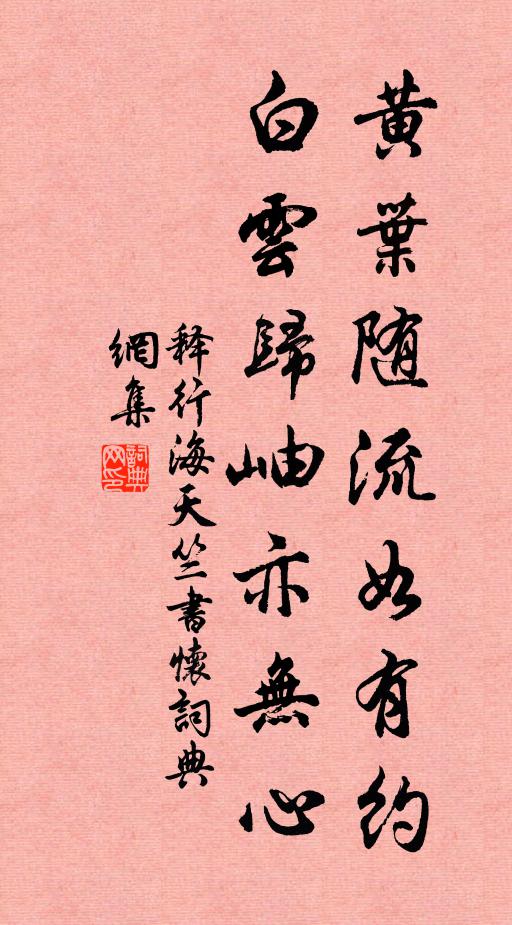 黄葉随流如有约
白雲歸岫亦無心
释行海天竺書懷詞典
網集
詞典網印